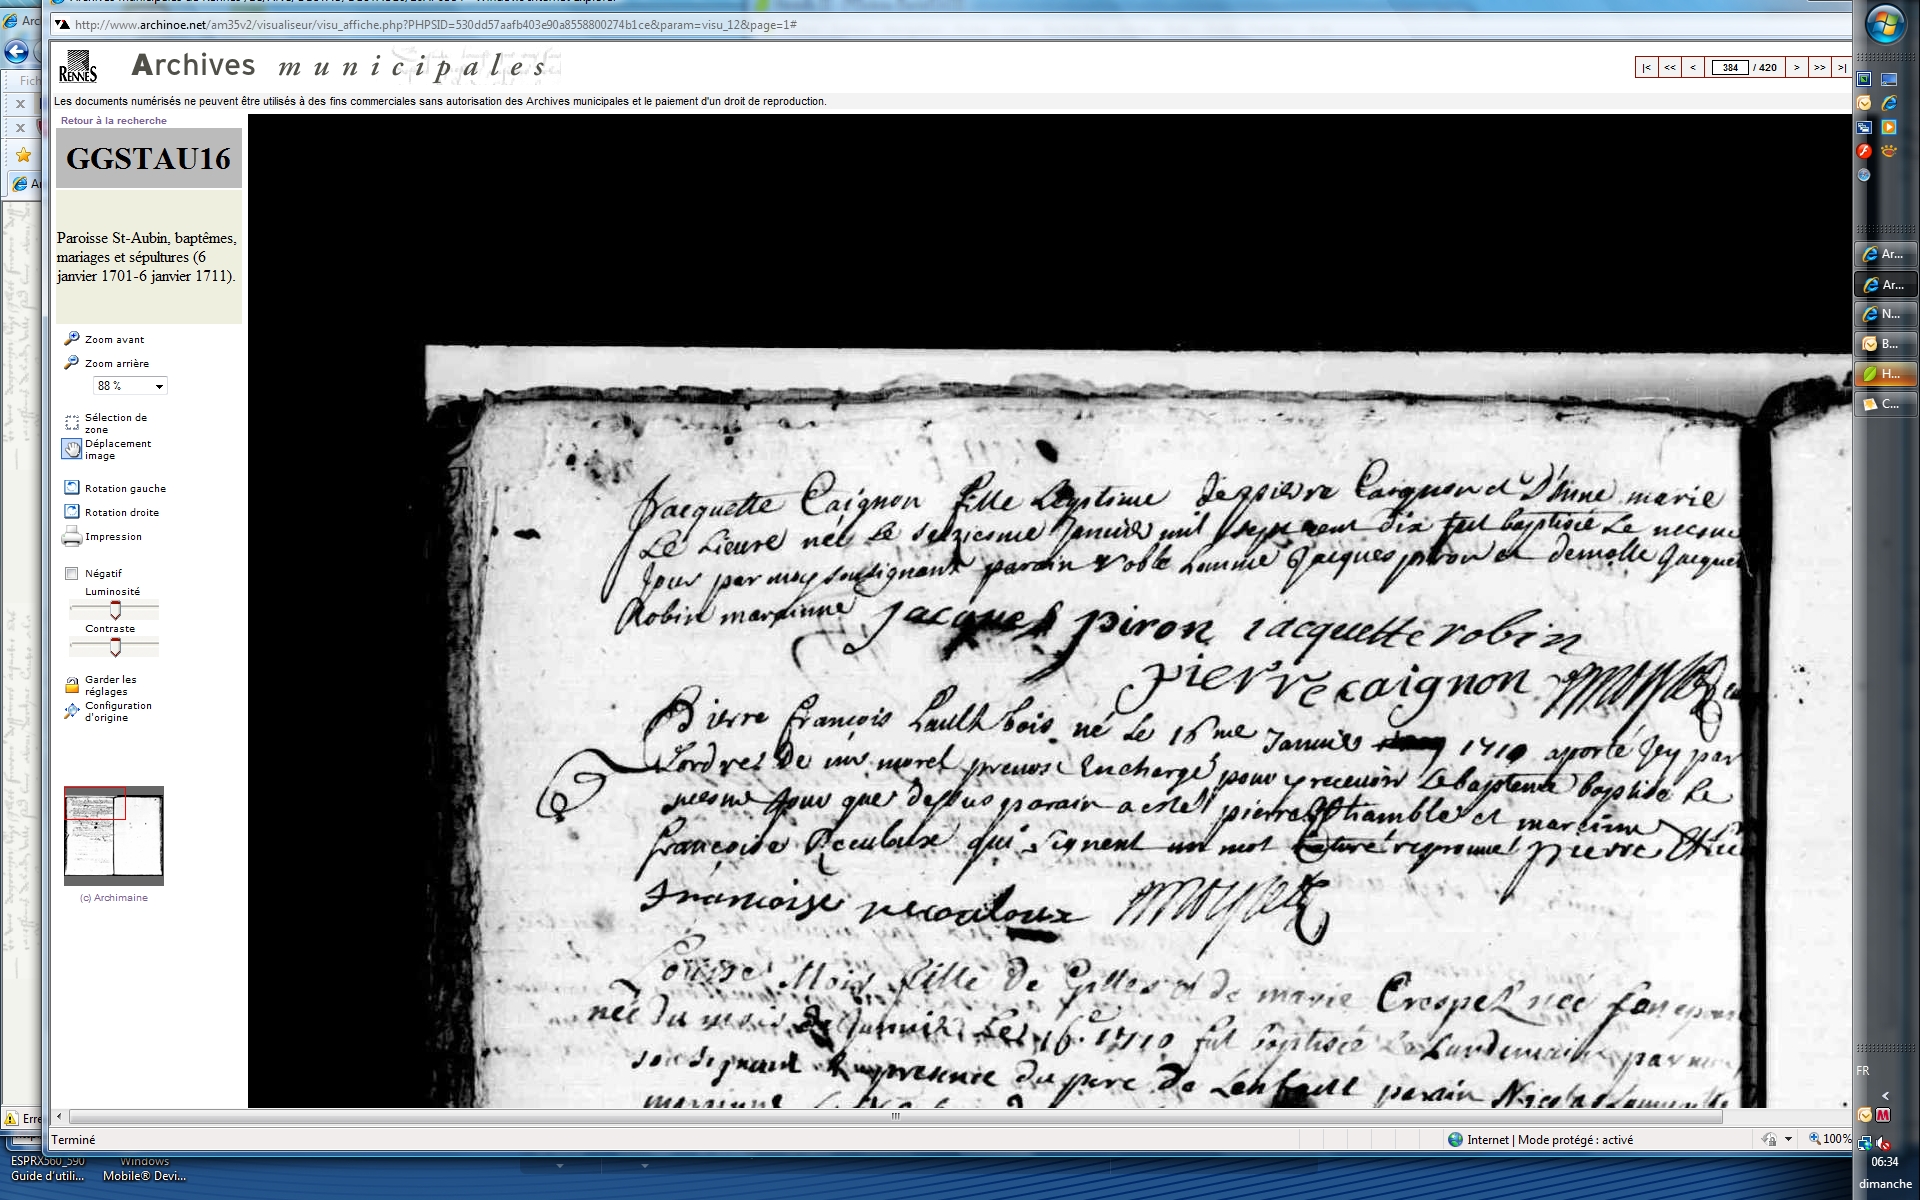 http://www.archinoe.net/am35v2/visualiseur/visu_affiche.php?PHPSID=530dd57aafb403e90a8558800274b1ce&param=visu_12&page=1#
RENNES
Archives municipales
|< << < 384 / 420 > >> >|
Les documents numérisés ne peuvent être utilisés à des fins commerciales sans autorisation des Archives municipales et le paiement d'un droit de reproduction.
Retour à la recherche
GGSTAU16
Paroisse St-Aubin, baptêmes,
mariages et sépultures (6
janvier 1701-6 janvier 1711).
Zoom avant
Zoom arrière
88 %
Sélection de
zone
Déplacement
image
Rotation gauche
Rotation droite
Impression
Négatif
Luminosité
Contraste
Garder les
réglages
Configuration
d'origine
(c) Archimaine
Jacquette Caignon fille Legitime de pierre Caignon et d'Anne marie
Le Lieure née Le seiziesme Janvier mil sept cent dix fut baptisée Le mesme
Jour par moy soussignant parain noble homme Jacques piron et demolle Jacquet
Robin marainne jacques piron jacquette robin
pierre caignon
Pierre François Lault bois né Le 16me Janvier 1710 aporté Icy par
Lordres de mr morel prevost En charge pour y recevoir Le bapteme baptisé Le
mesme Jour que dessus parain a esté pierre et maraine
Françoise Reculoux qui signent un mot raturé reprouvé pierre
Francoise recouloux
Louise Mois fille de Gilles et de marie Crespel
née du mois de Janvier Le 16e 1710 fut baptisée Le Landemain par moy
soussignant En presence du pere de Lenfant parain Nicolas
Terminé
Internet | Mode protégé : activé
100%
Ar...
Ar...
N...
B...
H...
C...
FR
06:34
dimanche
Erre
ESPRX560_590
Guide d'utili...
Windows
Mobile® Devi...